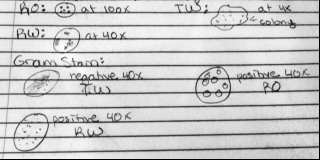 RO: at 100x TW: at 4x
colony
RW: at 40x
Gram Stain:
negative 40x positive 40x
T.W RO
positive 40x
RW